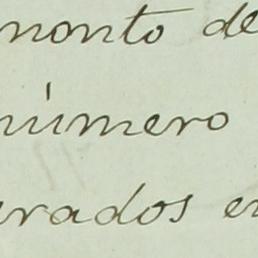 monto de
número
rados en